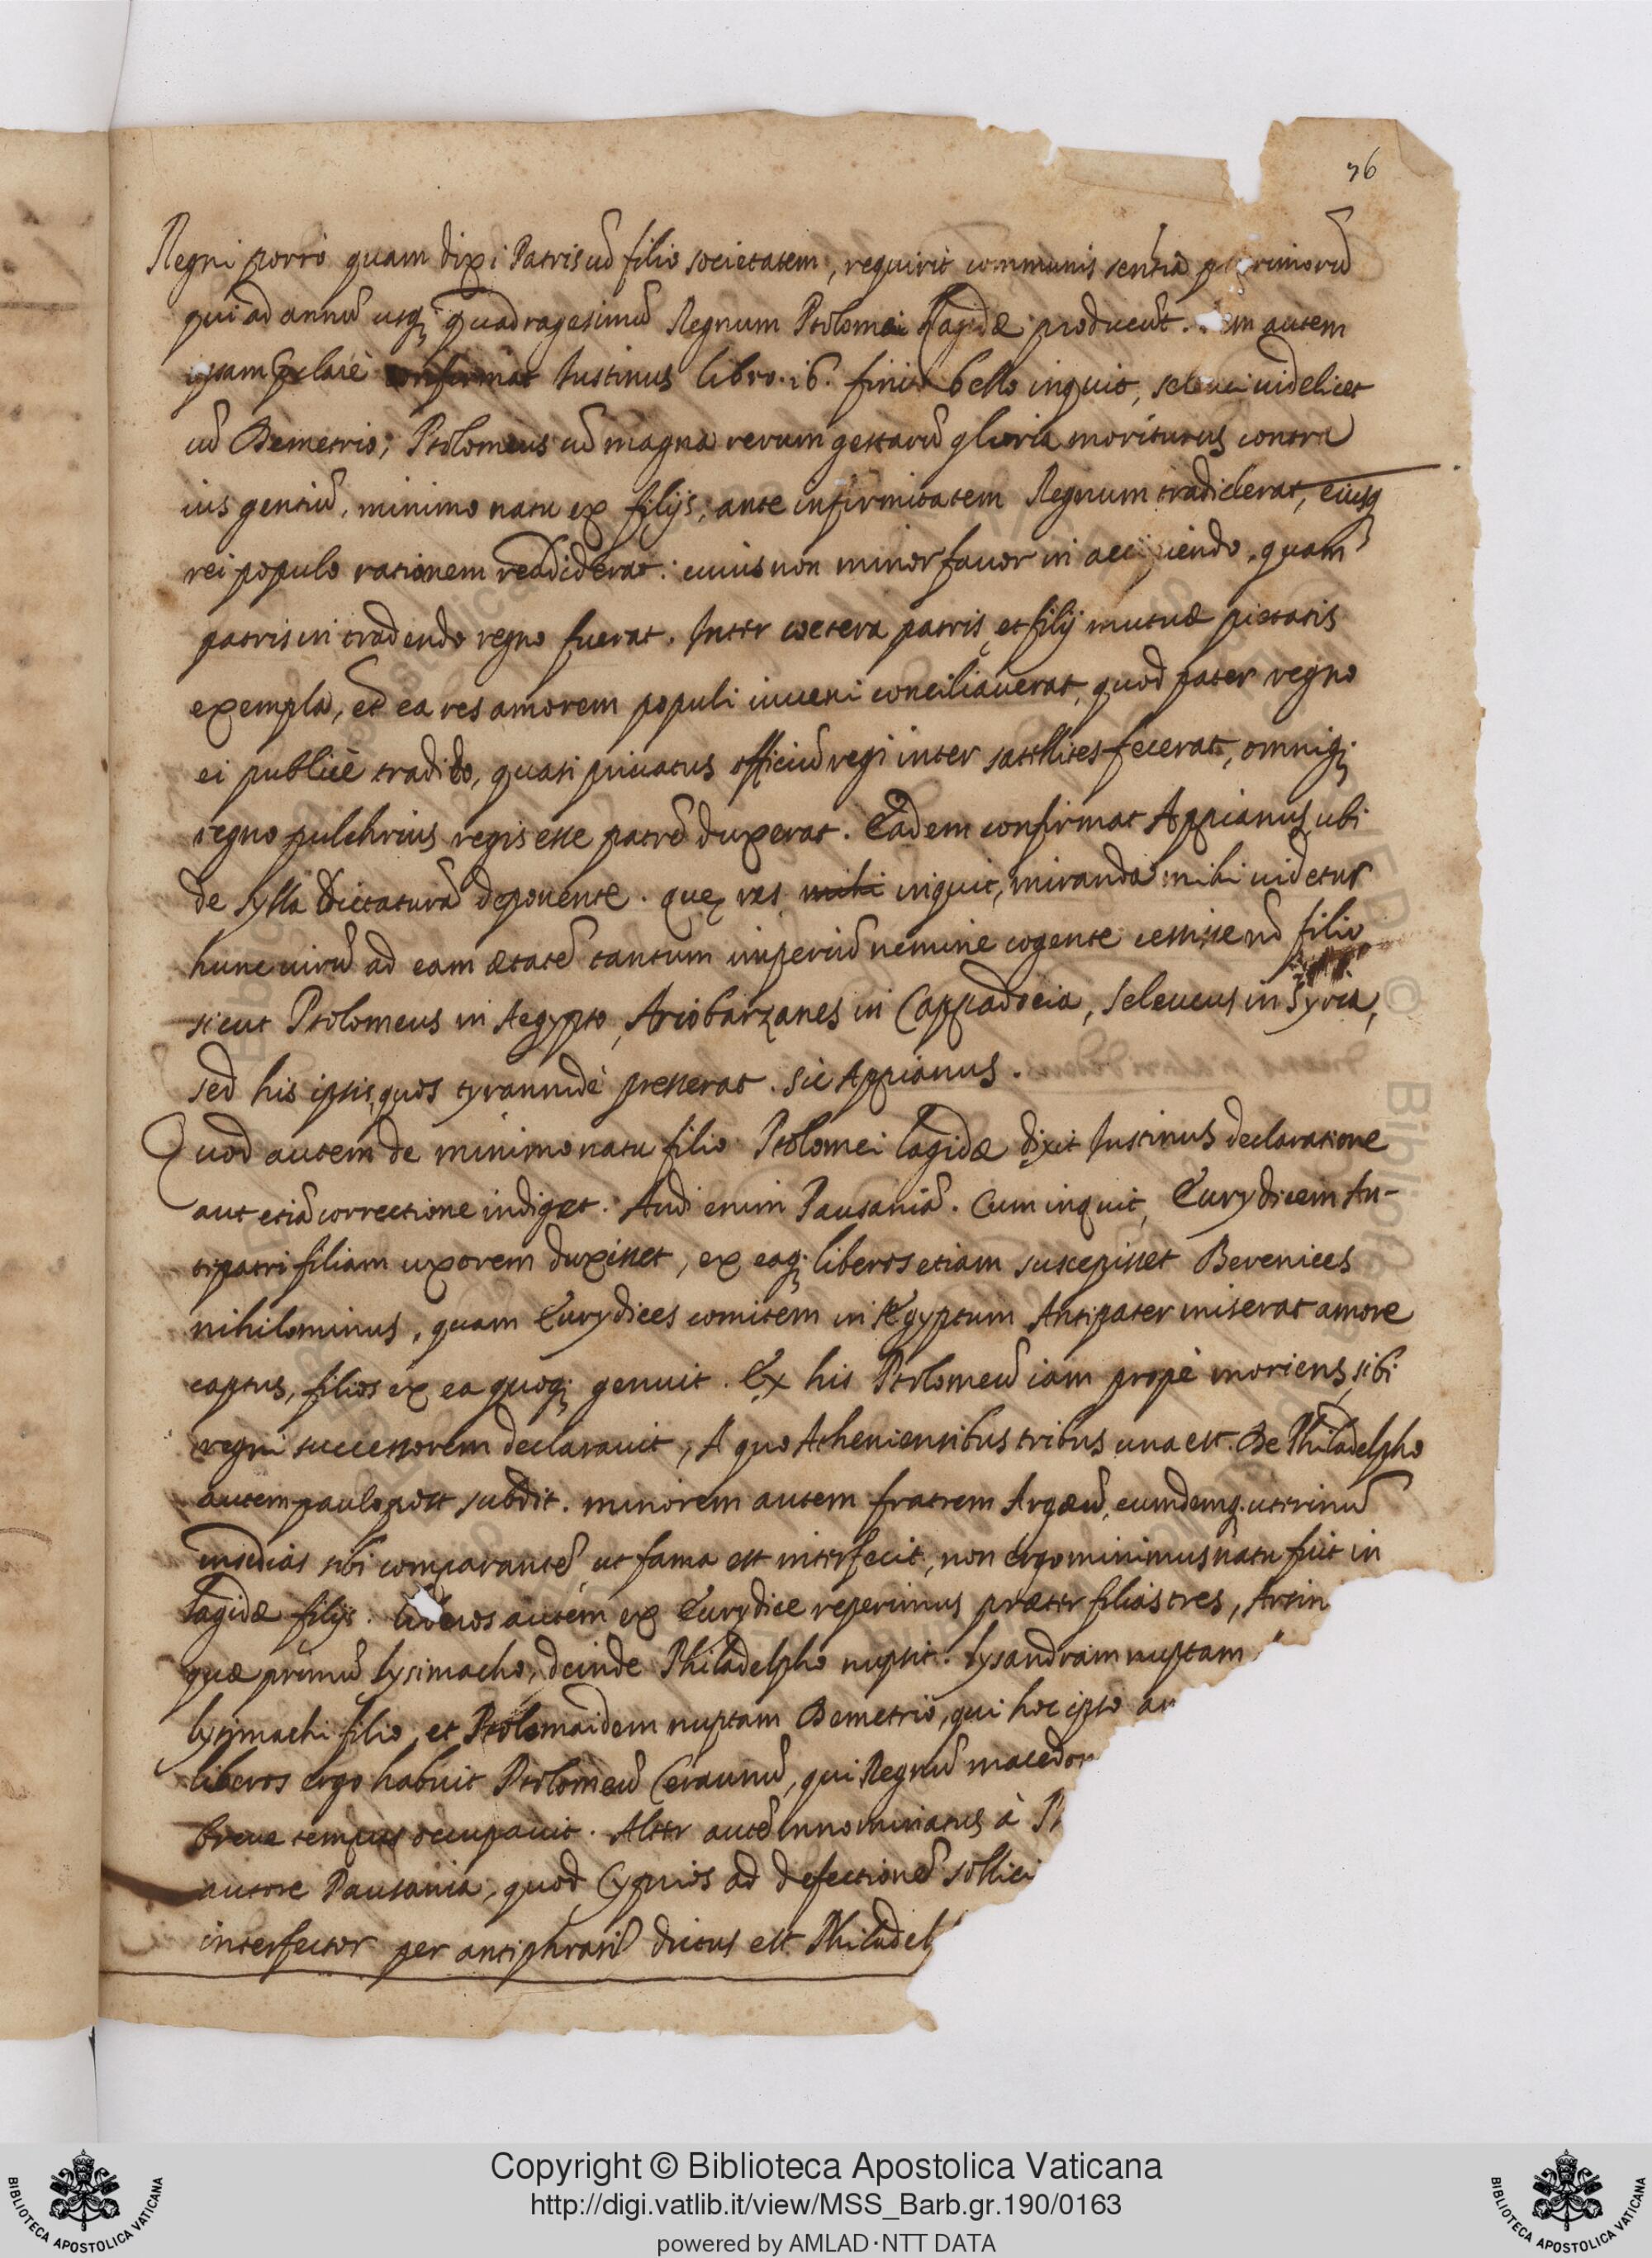 76
Regni porro quam dixi Patris cū filio societatem, requirit communis sentīa plurimorū
qui ad annū usq; quadragesimū Regnum Ptolomei Lagidæ producūt. autem
ipsam præclarè confirmat Iustinus libro. 16. finito bello inquit, seleuci uidelicet
cū Demetrio; Ptolomeus cū magna rerum gestarū gloria moriturus contra
ius gentiū, minimo natu ex filijs, ante infirmitatem Regnum tradiderat, eiusq
rei populo rationem reddiderat: cuius non minor fauor in accipiendo, quam
patris in tradendo regno fuerat. Inter cœtera patris, et filij mutuæ pietatis
exempla, et ea res amorem populi iuueni conciliauerat, quod pater regno
ei publicè tradito, quasi priuatus officiū regi inter satellites fecerat, omniq;
regno pulchrius regis esse patrē duxerat. Eadem confirmat Appianus, ubi
de Sylla Dictaturā deponente. quæ res mihi inquit, miranda mihi uidetur
hunc uirū ad eam ætatē tantum imperiū nemine cogente cessisse nō filio
sicut Ptolomeus in Aegypto, Ariobarzanes in Cappadocia, Seleucus in Syria,
sed his ipsis, quos tyrannidè presserat. Sic Appianus.
Quod autem de minimo natu filio Ptolomei Lagidæ dixit Iustinus declaratione
aut etiā correctione indiget. Audi enim Pausaniā. Cum inquit, Eurydicem An-
tipatri filiam uxorem duxisset, ex eaq; liberos etiam suscepisset Berenices
nihilominus, quam Eurydices comitem in Ægyptum Antipater miserat amore
captus, filios ex ea quoq; genuit. Ex his Ptolomeū iam propè moriens, sibi
regni successorem declarauit, A quo Atheniensibus tribus una est. De Philadelpho
autem paulo post subdit. minorem autem fratrem Argæū, eumdemq. uterinū
insidias sibi comparantē ut fama est interfecit, non ergo minimus natu fuit in
Lagidæ filijs. liberos autem ex Eurydice reperimus præter filias tres, Arsin
quæ primū Lysimacho, deinde Philadelpho nupsit. Lysandram nuptam
lysimachi filio, et Ptolemaidem nuptam Demetrio, qui hoc ipso an
liberos ergo habuit Ptolomeū Ceraunū, qui Regnū macedon
breue tempus occupauit. Alter autē Innominatus à P
autore Pausania, quod Cyprios ad defectionē sollici
interfector per antiphrasī dictus est Philadel
Copyright © Biblioteca Apostolica Vaticana
http://digi.vatlib.it/view/MSS_Barb.gr.190/0163
powered by AMLAD·NTT DATA
BIBLIOTECA APOSTOLICA VATICANA
BIBLIOTECA APOSTOLICA VATICANA